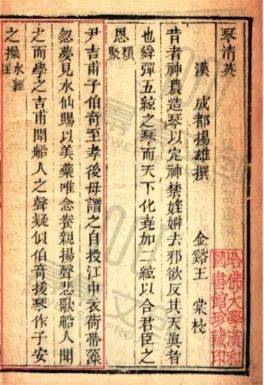 琴清英
漢 成都揚雄撰 金谿王 棠校
昔者神農造琴以定神禁婬嬖去邪欲反其天眞者
也舜彈五絃之琴而天下化堯加二絃以合君臣之
恩類聚
尹吉甫子伯奇至孝後母譖之自投江中衣荷帶藻
忽夢見水仙賜以美藥唯念養親揚聲悲歌船人聞
之而學之吉甫聞船人之聲疑似伯奇援琴作子安
之操水經注
哈佛大學漢和圖書館珍藏印